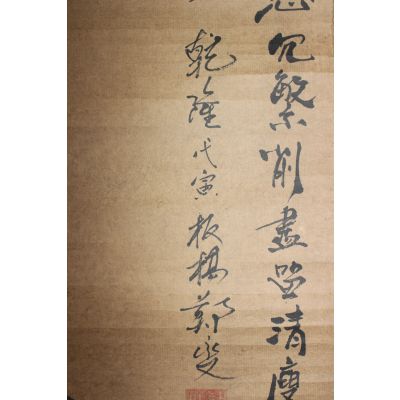 思冗繁削盡留清瘦
乾隆戊寅板橋鄭燮